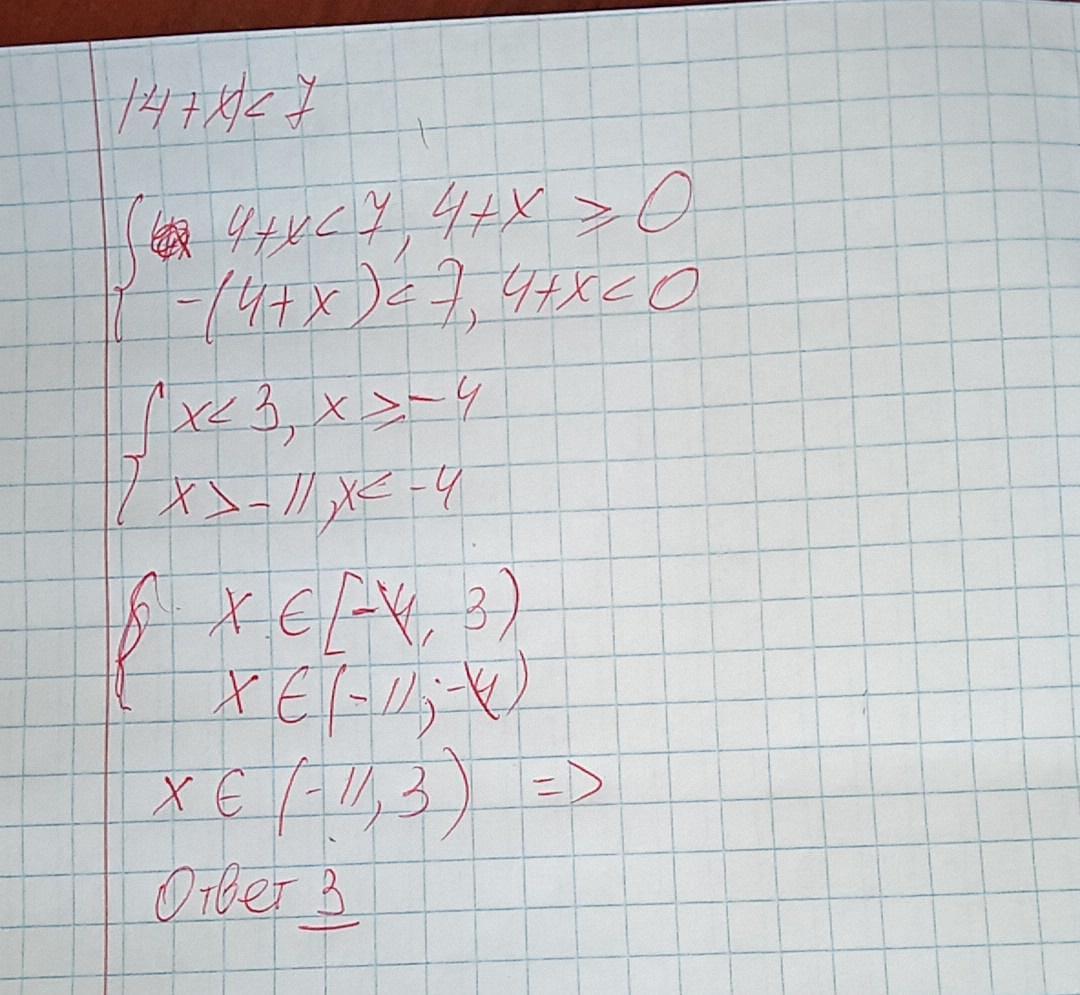 |4+x|<7
4+x<7, 4+x ≥ 0
-(4+x)<7, 4+x<0
x<3, x ≥ -4
x>-11, x<-4
x ∈ [-4, 3)
x ∈ (-11; -4)
x ∈ (-11, 3) =>
Ответ 3